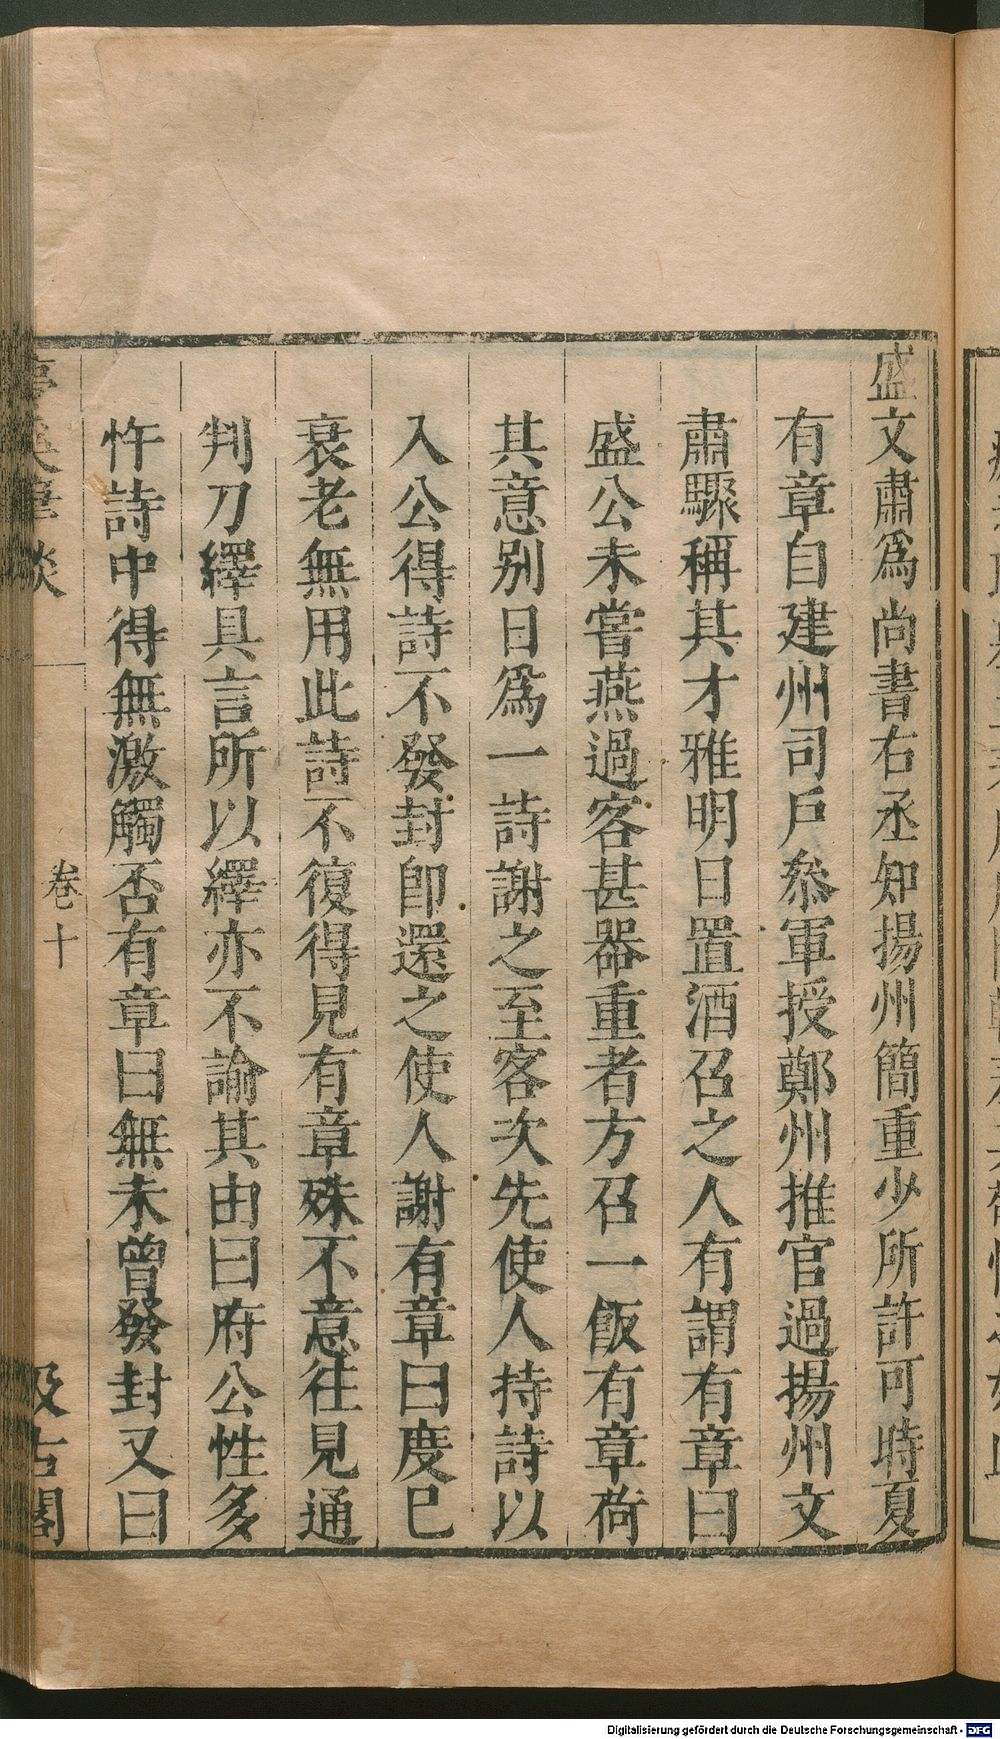 盛文肅爲尚書右丞知揚州簡重少所許可時夏
有章自建州司戶叅軍授鄭州推官過揚州文
肅驟稱其才雅明日置酒召之人有謂有章曰
盛公未嘗燕過客甚器重者方召一飯有章荷
其意别日爲一詩謝之至客次先使人持詩以
入公得詩不發封卽還之使人謝有章曰度已
衰老無用此詩不復得見有章殊不意往見通
判刀繹具言所以繹亦不諭其由曰府公性多
忤詩中得無激觸否有章曰無未曾發封又曰
筆談
卷十
汲古閣
Digitalisierung gefördert durch die Deutsche Forschungsgemeinschaft - DFG